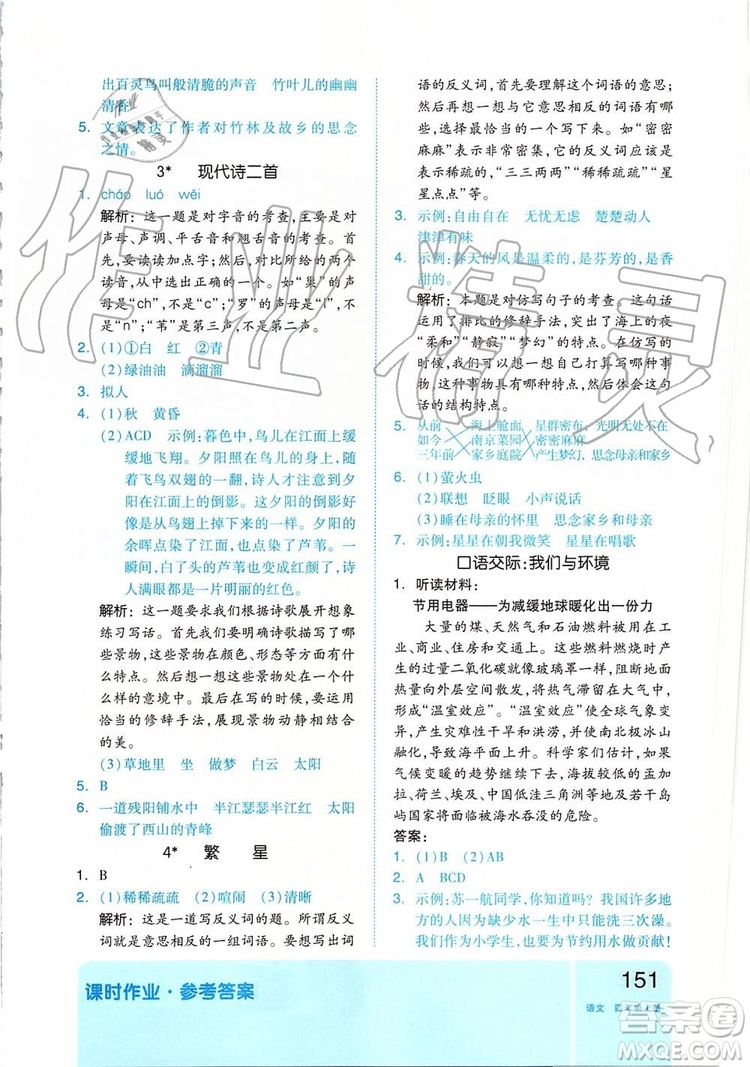 出百灵鸟叫般清脆的声音　竹叶儿的幽幽
清香
5. 文章表达了作者对竹林及故乡的思念
之情。
3*　现代诗二首
1. cháo　luó　wěi
解析：这一题是对字音的考查,主要是对
声母、声调、平舌音和翘舌音的考查。首
先,要读读加点字；然后,对比所给的两个
读音,从中选出正确的一个。如“巢”的声
母是“ch”,不是“c”；“罗”的声母是“l”,不
是“n”；“苇”是第三声,不是第二声。
2. (1)①白　红　②青
(2)绿油油　滴溜溜
3. 拟人
4. (1)秋　黄昏
(2)ACD　示例：暮色中,鸟儿在江面上缓
缓地飞翔。夕阳照在它的翅膀上,随着
随着飞鸟双翅的一翻,诗人才注意到了夕
阳在江面上的倒影。这夕阳的倒影好
像是从鸟翅上掉下来的一样。夕阳的
余晖点染了江面,也点染了芦苇。一
瞬间,飞鸟与夕阳的芦苇也变成了红色,诗
人满眼都是一片明丽的红色。
解析：这一题要求我们根据诗歌展开想象
练习写话。首先我们要弄明白诗歌中描
写了哪些景物,这些景物在颜色、形态上
是怎样的。然后,想想这些景物在一个什
么样的意境中。最后在写的时候,要运用
恰当的修辞手法,展现景物动静相结合
的美。
(3)草地里　坐　做梦　白云　太阳
5. B
6. 一道残阳铺水中　半江瑟瑟半江红　太阳
偷渡了西山的青峰
4*　繁　星
1. B
2. (1)稀稀疏疏　(2)喧闹　(3)清晰
解析：这是一道写反义词的题。所谓反义
词就是意思相反的一组词语。要写出词
语的反义词,首先要理解这个词语的意思；
然后,根据意思写出它的反义词。如“密密
麻麻”表示非常密集,它的反义词可以是表
示稀疏的,“三三两两”“稀稀疏疏”“星
星点点”等。
3. 示例：自由自在　无忧无虑　楚楚动人
津津有味
4. 示例：春天的风是温柔的,是芬芳的,是香
甜的。
解析：本题是对仿写句子的考查。这句话
运用了排比的修辞手法,突出了海上的夜
“柔和”“静寂”“梦幻”的特点。在仿写
时,首先,要想一想自己打算写什么事物、
这种事物具有哪些特点；然后,再根据例
句的结构特点写。
5. 从前　海上舱面　星群密布,光明无处不在
如今　南京菜园　密密麻麻
三年前　家乡庭院　产生梦幻,思念母亲和家乡
6. (1)萤火虫
(2)联想　眨眼　小声说话
(3)睡在母亲的怀里　思念家乡和母亲
7. 示例：星星在朝我微笑　星星在唱歌
口语交际：我们与环境
1. 听读材料：
节用电器——为减缓地球暖化出一份力
大量的煤、天然气和石油燃料被用在工
业、商业、住房和交通上。这些燃料燃烧时产
生的过量二氧化碳就像玻璃罩一样,阻断地面
热量向外层空间散发,将热气滞留在大气中,
形成“温室效应”。“温室效应”使全球气象变
异,产生灾难性干旱和洪涝,并使南北极冰山
融化,导致海平面上升。科学家们估计,如果
气候变暖的趋势继续下去,海拔较低的孟加
拉、荷兰、埃及、中国低洼三角洲等地及若干岛
屿国家将面临被海水吞没的危险。
答案：
1. (1)B　(2)AB
2. A　BCD
3. 示例：苏一航同学,你知道吗？我国许多地
方的人因为缺少水一生中洗三次澡。
我们作为小学生,也要为节约用水做贡献！
课时作业·参考答案
151
语文
作业精灵
答案圈
MXQE.COM